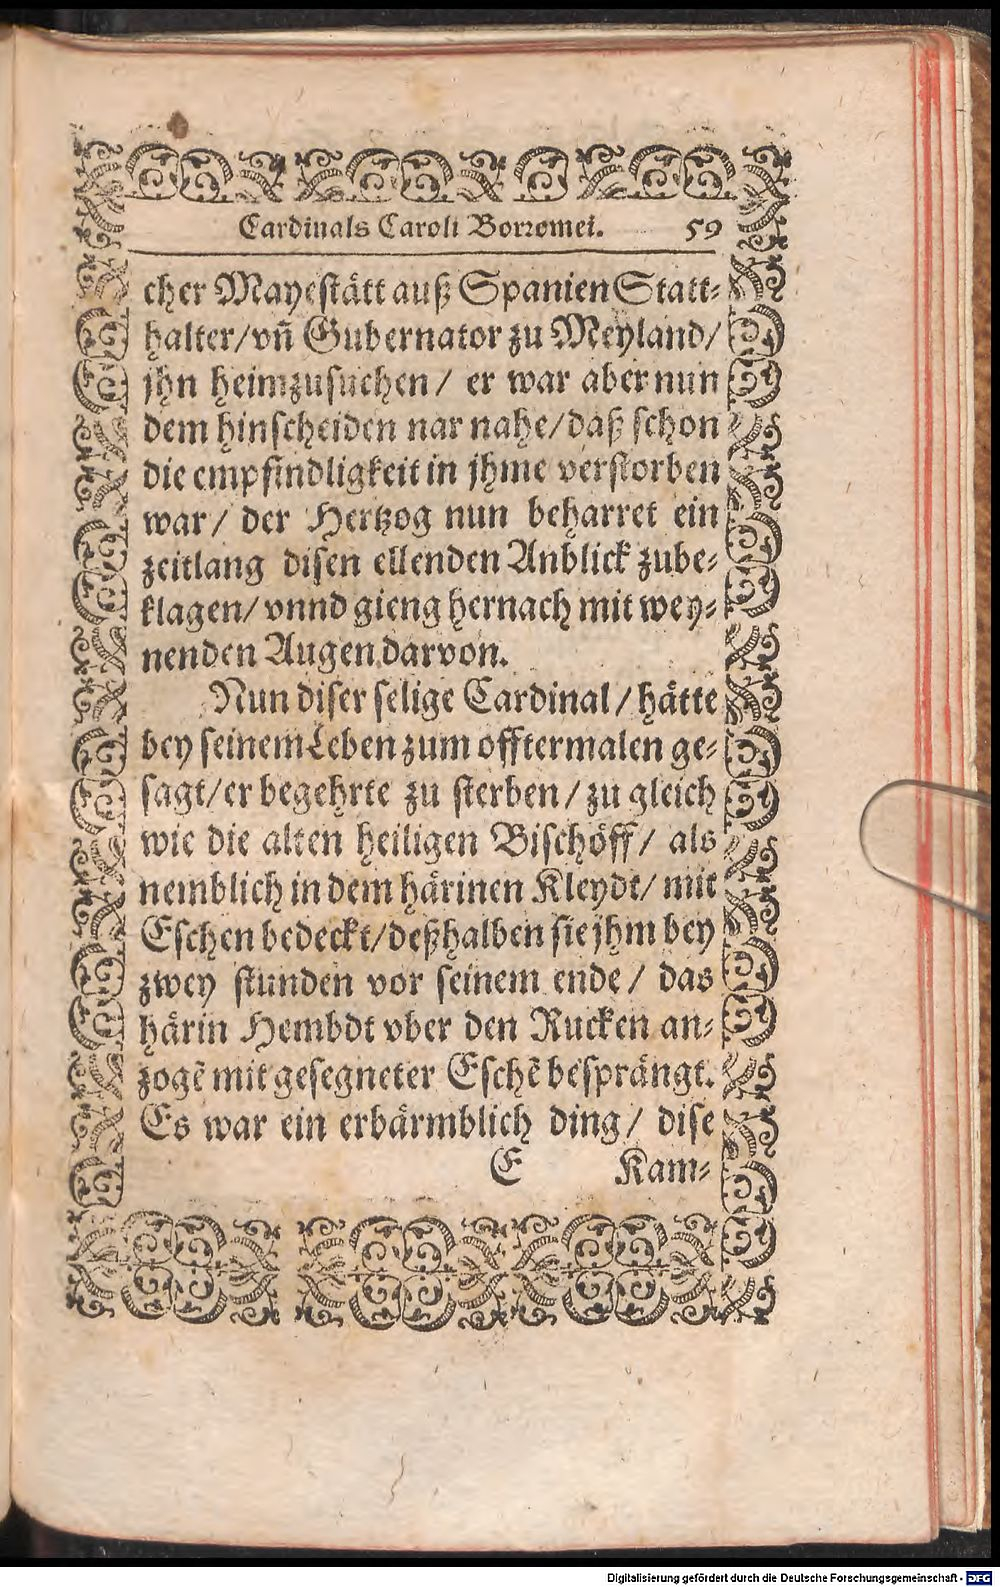 Cardinals Caroli Borromei. 59
cher Mayestätt auß Spanien Statt-
halter/vñ Gubernator zu Meyland/
jhn heimzusuchen/ er war aber nun
dem hinscheiden nar nahe/daß schon
die empfindligkeit in jhme verstorben
war/ der Hertzog nun beharret ein
zeitlang disen ellenden Anblick zube-
klagen/ vnnd gieng hernach mit wey-
nenden Augen darvon.
Nun diser selige Cardinal/ hätte
bey seinem Leben zum offtermalen ge-
sagt/er begehrte zu sterben/zu gleich
wie die alten heiligen Bischöff/ als
nemblich in dem härinen Kleydt/ mit
Eschen bedeckt/deßhalben sie jhm bey
zwey stunden vor seinem ende/ das
härin Hembdt vber den Rucken an-
zogẽ mit gesegneter Eschẽ besprängt.
Es war ein erbärmblich ding/ dise
E Kam-
Digitalisierung gefördert durch die Deutsche Forschungsgemeinschaft - DFG